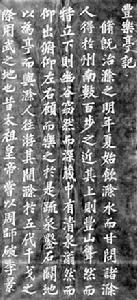 豐樂亭記
脩既治滁之明年夏始飲滁水而甘問諸滁
人得於州南數百步之近其上則豐山聳然而
特立下則幽谷窈然而深藏中有清泉滃然而
仰出俯仰左右顧而樂之於是疏泉鑿石闢地
以為亭而與滁人往遊其間滁於五代干戈之
際用武之地也昔太祖皇帝嘗以周師破李景